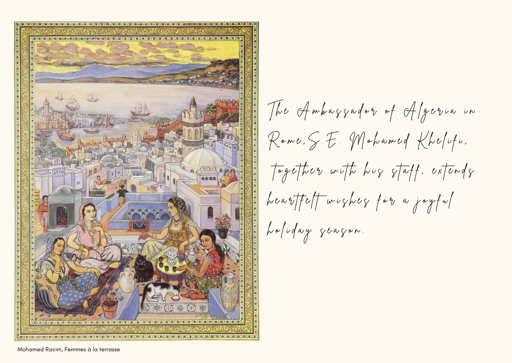 The Ambassador of Algeria in
Rome, S.E. Mohamed Khelifi,
together with his staff, extends
heartfelt wishes for a joyful
holiday season.
Mohamed Racim, Femmes à la terrasse